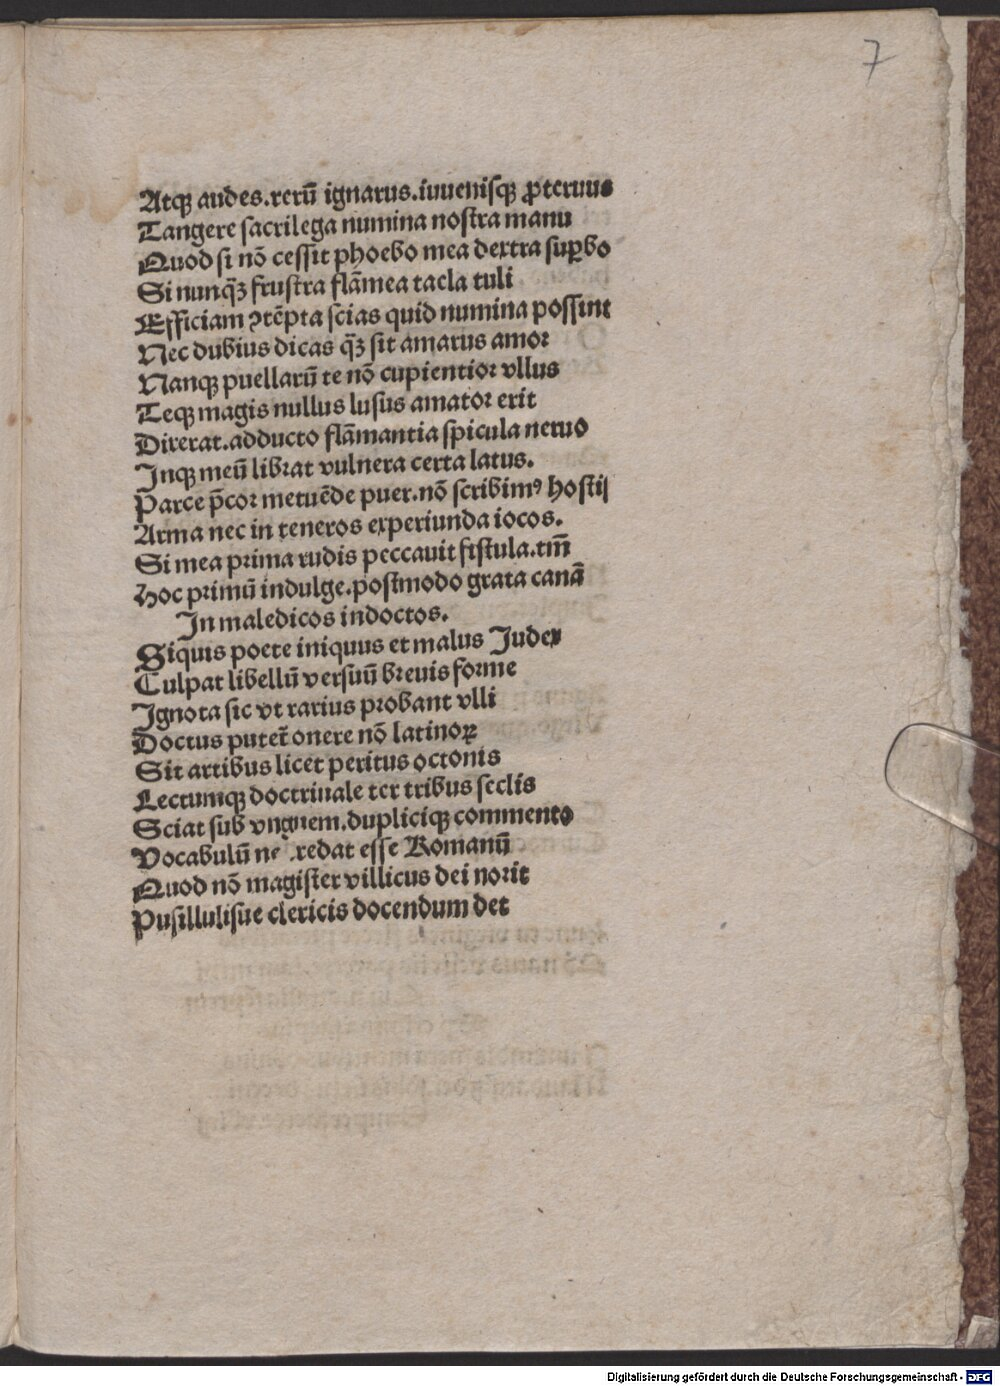 7
Atqꝫ audes.rerū ignarus.iuuenisqꝫ ꝓteruus
Tangere sacrilega numina nostra manu
Quod si nō cessit phoebo mea dextra suꝑbo
Si nunq̄ꝫ frustra flāmea tacla tuli
Efficiam ꝯtēpta scias quid numina possint
Nec dubius dicas q̄ꝫ sit amarus amoꝛ
Nanqꝫ puellarū te nō cupientioꝛ vllus
Teqꝫ magis nullus lusus amatoꝛ erit
Dixerat.adducto flāmantia spicula neruo
Jnqꝫ meū libꝛat vulnera certa latus.
Parce p̄coꝛ metuēde puer.nō scribimꝰ hostij
Arma nec in teneros experiunda iocos.
Si mea pꝛima rudis peccauit fistula.tm̄
Hoc pꝛimū indulge.postmodo grata canā
Jn maledicos indoctos.
Siquis poete iniquus et malus Judex
Culpat libellū versuū bꝛeuis foꝛme
Jgnota sic vt rarius pꝛobant vlli
Doctus puteť onere nō latinoꝝ
Sit artibus licet peritus octonis
Lectumqꝫ doctrinale ter tribus seclis
Sciat sub vnguem.dupliciqꝫ commento
Vocabulū ne redat esse Romanū
Quod nō magister villicus dei noꝛit
Pusillulisue clericis docendum det
Digitalisierung gefördert durch die Deutsche Forschungsgemeinschaft - DFG